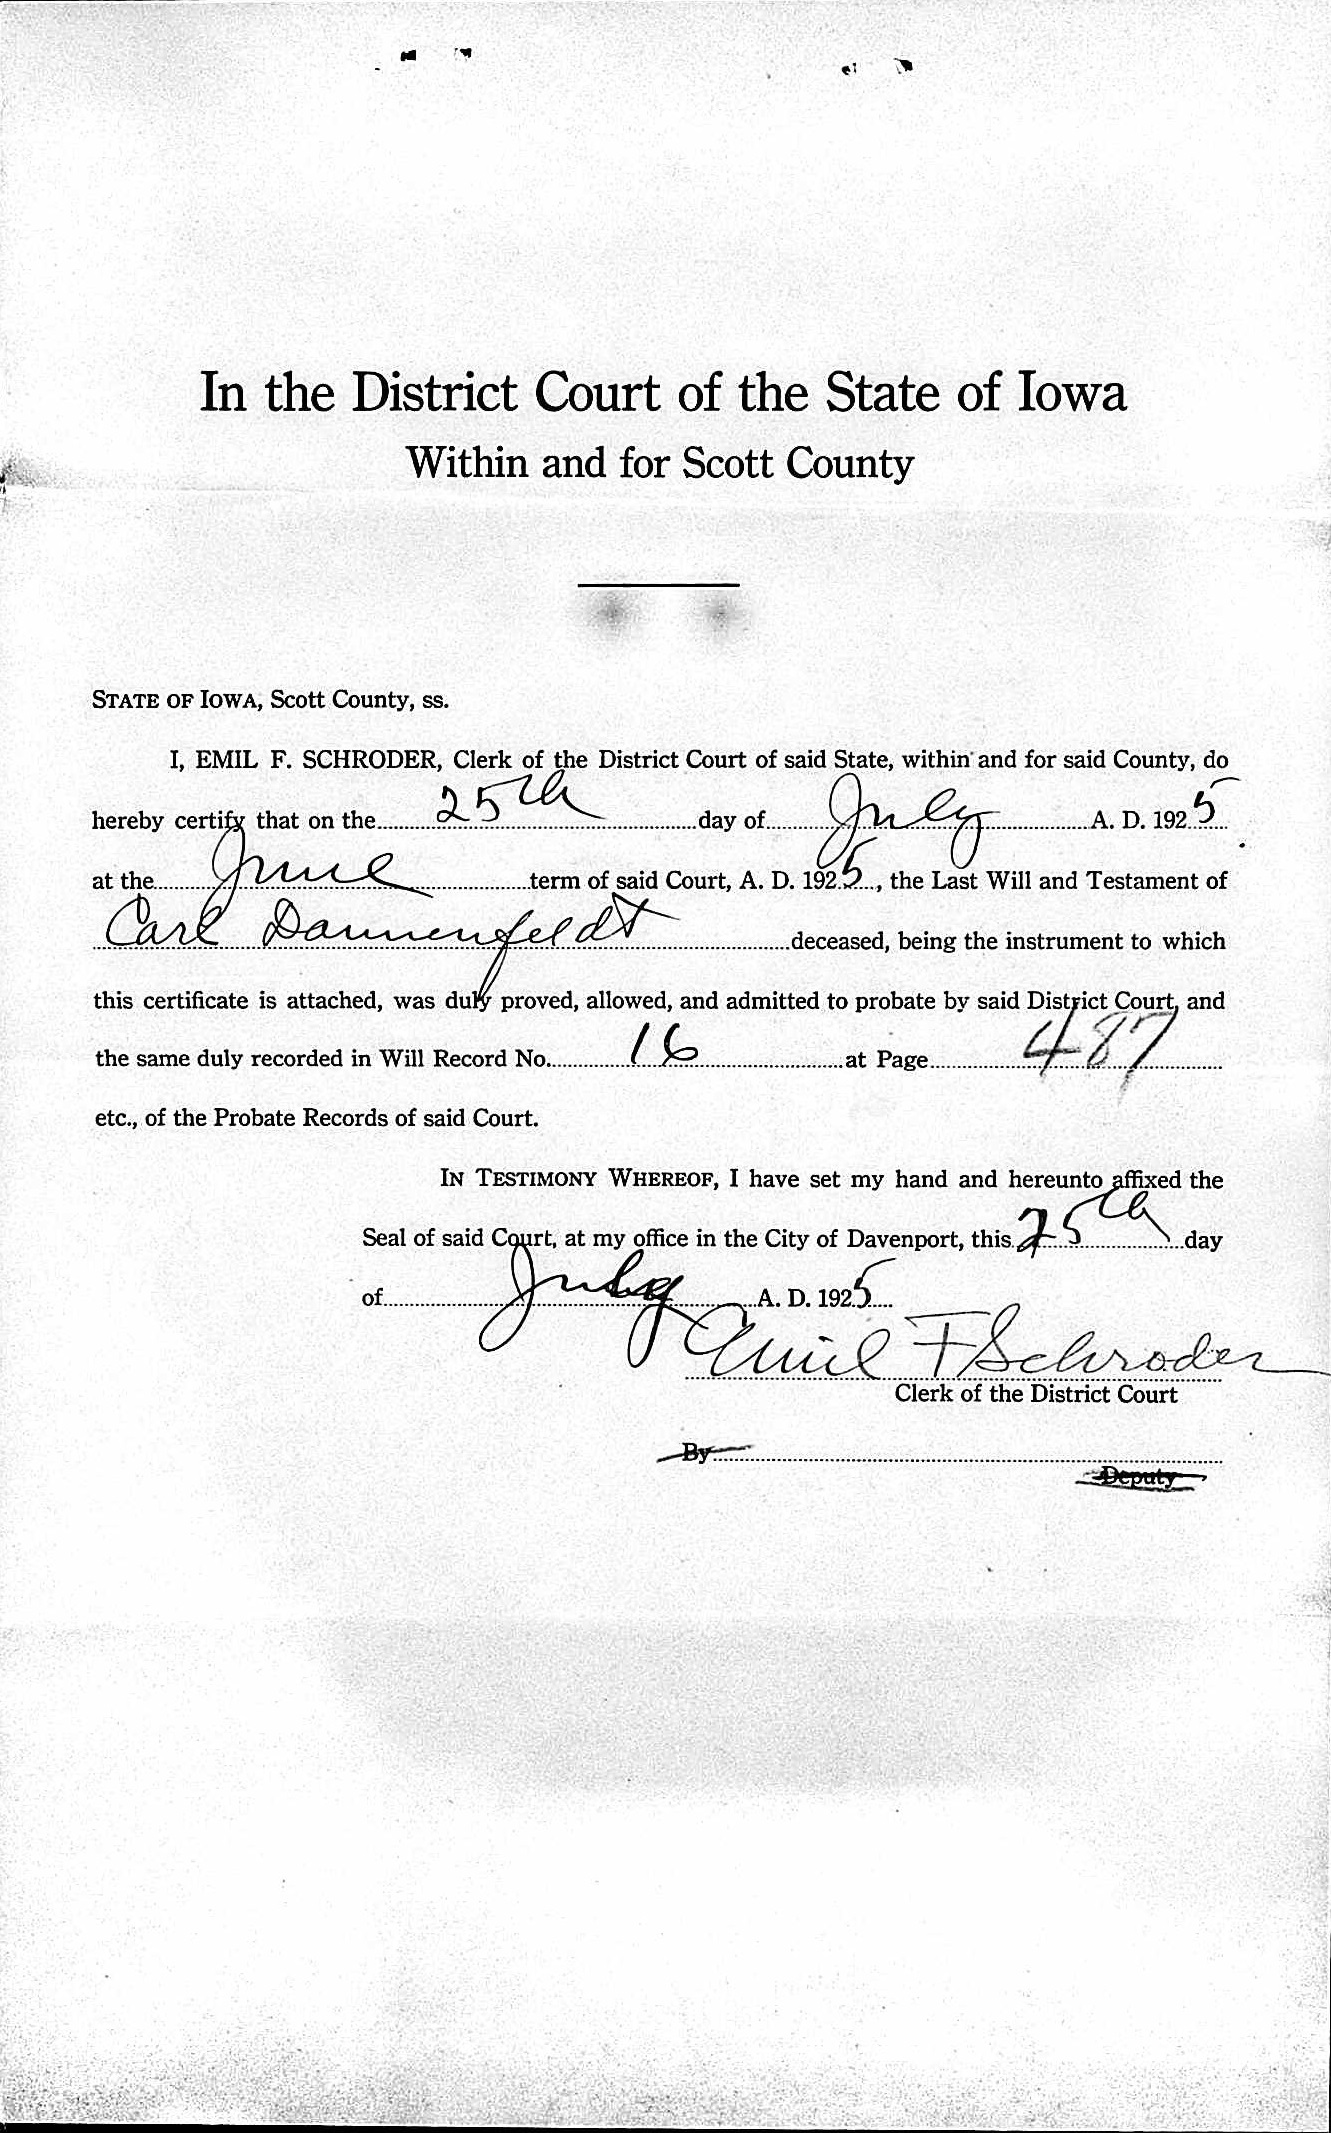 In the District Court of the State of Iowa
Within and for Scott County
STATE OF IOWA, Scott County, ss.
I, EMIL F. SCHRODER, Clerk of the District Court of said State, within and for said County, do
hereby certify that on the 25th day of July A. D. 1925
at the June term of said Court, A. D. 1925, the Last Will and Testament of
Carl Dannenfeldt deceased, being the instrument to which
this certificate is attached, was duly proved, allowed, and admitted to probate by said District Court, and
the same duly recorded in Will Record No. 16 at Page 487
etc., of the Probate Records of said Court.
IN TESTIMONY WHEREOF, I have set my hand and hereunto affixed the
Seal of said Court, at my office in the City of Davenport, this 25th day
of July A. D. 1925
Emil F Schroder
Clerk of the District Court
By
Deputy